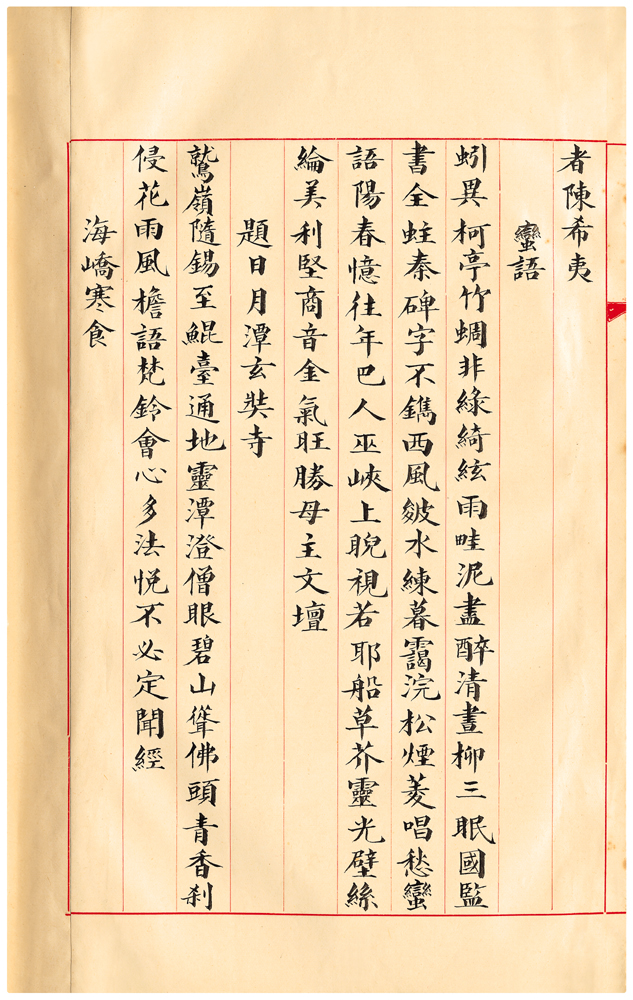 者陳希夷
蠻語
蚓異柯亭竹蜩非綠綺絃雨畦泥盡醉清晝柳三眠國監
書全蛀秦碑字不鐫西風皴水練暮靄浣松煙菱唱愁蠻
語陽春憶往年巴人巫峽上睨視若耶船草芥靈光壁絲
綸美利堅商音金氣旺勝母主文壇
題日月潭玄奘寺
鷲嶺隨錫至鯤臺通地靈潭澄僧眼碧山聳佛頭青香剎
侵花雨風檐語梵鈴會心多法悅不必定聞經
海嶠寒食